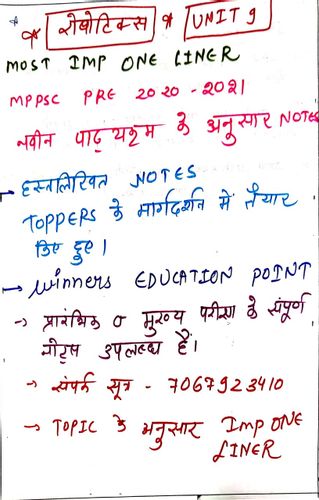 * रोबोटिक्स * UNIT 9
MOST IMP ONE LINER
MPPSC PRE 2020-2021
नवीन पाठ्यक्रम के अनुसार NOTES
→ हस्तलिखित NOTES
TOPPERS के मार्गदर्शन में तैयार
किए हुए।
→ Winners EDUCATION POINT
→ प्रारंभिक व मुख्य परीक्षा के संपूर्ण
नोट्स उपलब्ध हैं।
→ संपर्क सूत्र - 7067923410
→ TOPIC के अनुसार Imp ONE
LINER